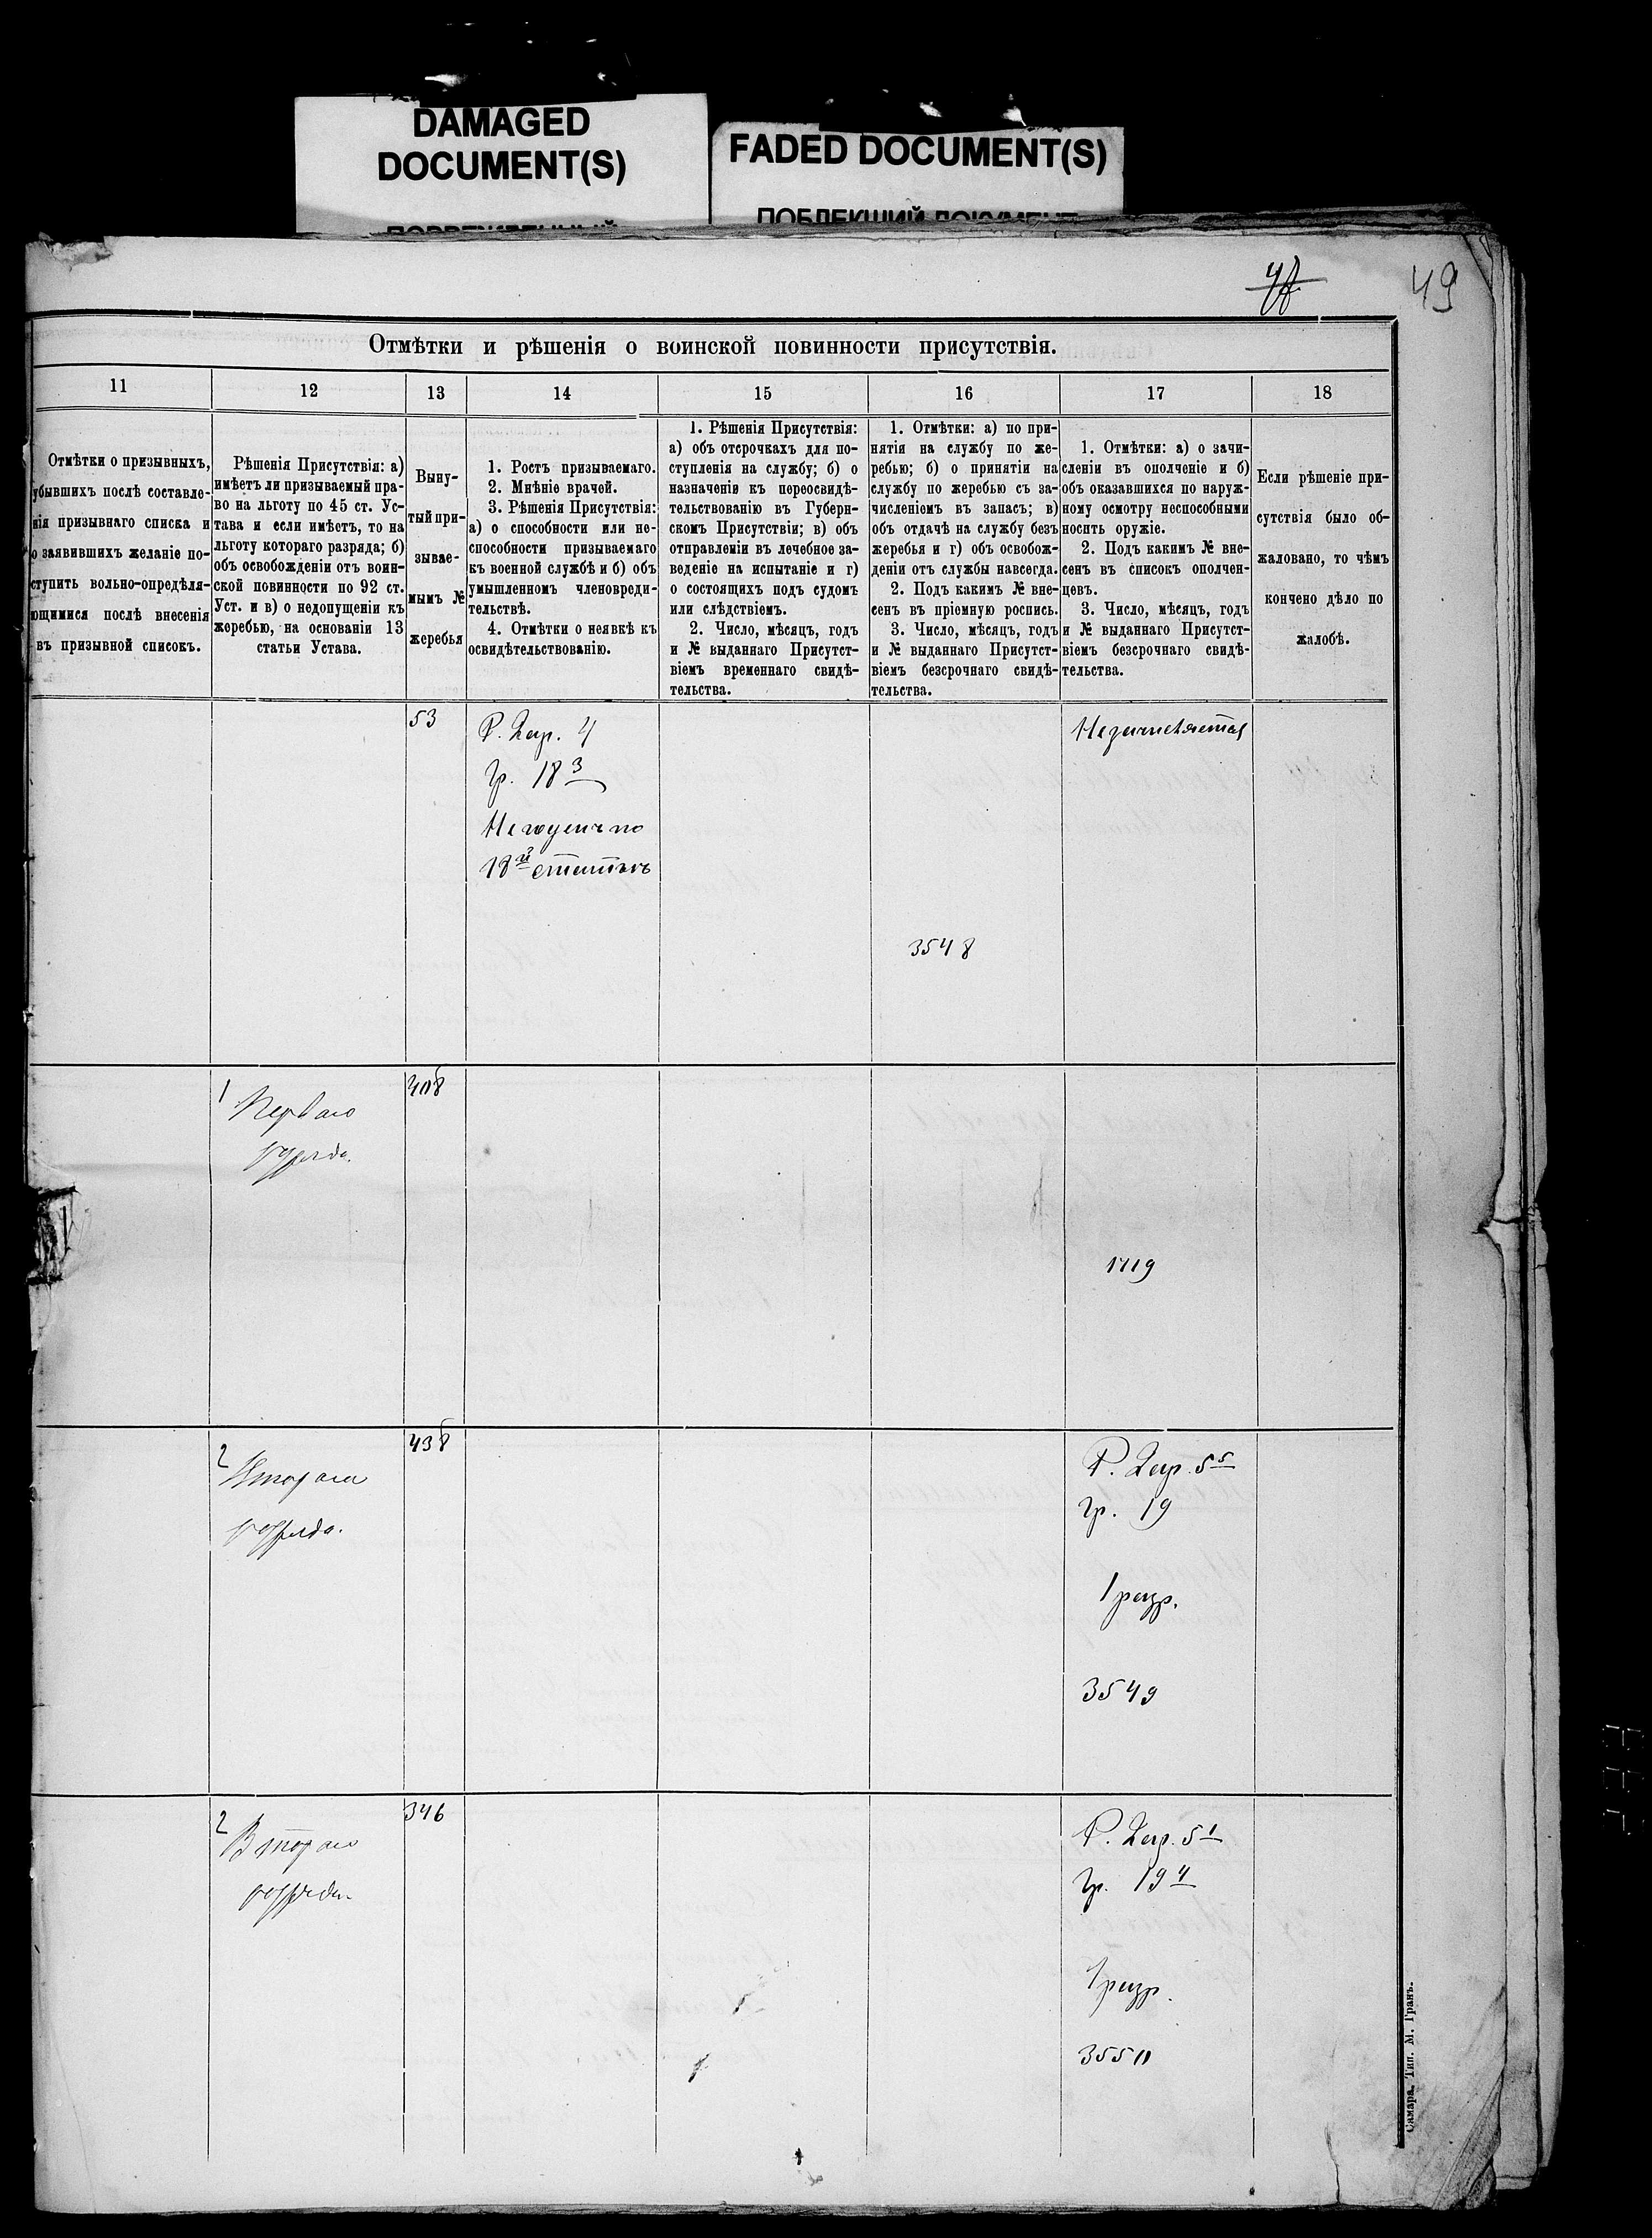 DAMAGED
DOCUMENT(S)
FADED DOCUMENT(S)
ПОБЛЕКШИЙ ДОКУМЕНТ
49
Отмѣтки и рѣшенія о воинской повинности присутствія.
11
12
13
14
15
16
17
18
Отмѣтки о призывныхъ,
убывшихъ послѣ составле-
нія призывнаго списка и
о заявившихъ желаніе по-
ступить вольно-опредѣля-
ющимися послѣ внесенія
въ призывной списокъ.
Рѣшенія Присутствія: а)
имѣетъ ли призываемый пра-
во на льготу по 45 ст. Ус-
тава и если имѣетъ, то на
льготу котораго разряда; б)
объ освобожденіи отъ воин-
ской повинности по 92 ст.
Уст. и в) о недопущеніи къ
жеребью, на основаніи 13
статьи Устава.
Выну-
тый при-
зывае-
мымъ №
жеребья
1. Ростъ призываемаго.
2. Мнѣніе врачей.
3. Рѣшенія Присутствія:
а) о способности или не-
способности призываемаго
къ военной службѣ и б) объ
умышленномъ членовреди-
тельствѣ.
4. Отмѣтки о неявкѣ къ
освидѣтельствованію.
1. Рѣшенія Присутствія:
а) объ отсрочкахъ для по-
ступленія на службу; б) о
назначеніи къ переосвидѣ-
тельствованію въ Губерн-
скомъ Присутствіи; в) объ
отправленіи въ лечебное за-
веденіе на испытаніе и г)
о состоящихъ подъ судомъ
или слѣдствіемъ.
2. Число, мѣсяцъ, годъ
и № выданнаго Присутст-
віемъ временнаго свидѣ-
тельства.
1. Отмѣтки: а) по при-
нятія на службу по же-
ребью; б) о принятіи на
службу по жеребью съ за-
численіемъ въ запасъ; в)
объ отдачѣ на службу безъ
жеребья и г) объ освобож-
деніи отъ службы навсегда.
2. Подъ какимъ № вне-
сенъ въ пріемную роспись.
3. Число, мѣсяцъ, годъ
и № выданнаго Присутст-
віемъ безсрочнаго свидѣ-
тельства.
1. Отмѣтки: а) о зачи-
сленіи въ ополченіе и б)
объ оказавшихся по наруж-
ному осмотру неспособными
носить оружіе.
2. Подъ какимъ № вне-
сенъ въ списокъ ополчен-
цевъ.
3. Число, мѣсяцъ, годъ
и № выданнаго Присутст-
віемъ безсрочнаго свидѣ-
тельства.
Если рѣшеніе при-
сутствія было об-
жаловано, то чѣмъ
кончено дѣло по
жалобѣ.
53
Р. 2 ар. 4
гр. 18 3
Негоденъ по
18й статьѣ
Незачисляется
3548
1 Перваго
разряда.
408
1119
2 Втораго
разряда.
438
Р. 2 ар. 5 5
гр. 19
1 разр.
3549
2 Втораго
разряда.
346
Р. 2 ар. 5 1
гр. 19 4
1 разр.
3550
Самара. Тип. М. Гранъ.